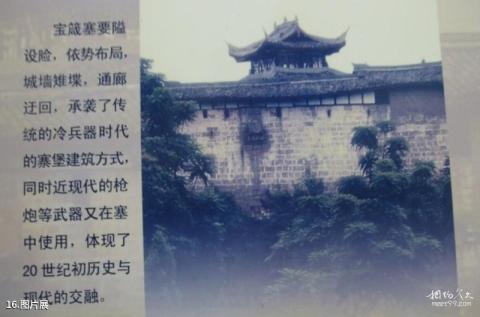 宝箴塞要隘
设险，依势布局，
城墙雉堞，通廊
迂回，承袭了传
统的冷兵器时代
的寨堡建筑方式，
同时近现代的枪
炮等武器又在塞
中使用，体现了
20世纪初历史与
现代的交融。
16.图片展
meet99.com